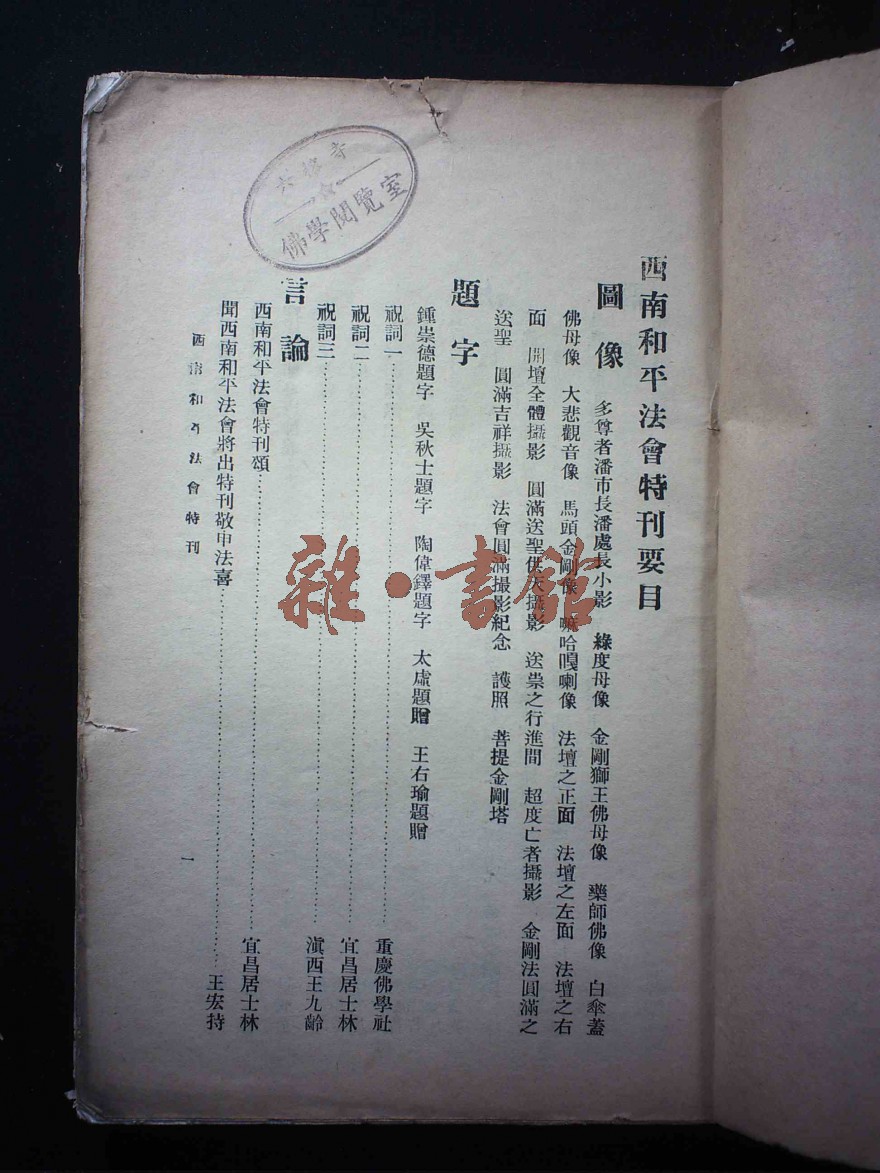 西南和平法會特刊要目
圖像 多尊者潘市長潘處長小影 綠度母像 金剛獅王佛母像 藥師佛像 白傘蓋
佛母像 大悲觀音像 馬頭金剛像 嘛哈嘎喇像 法壇之正面 法壇之左面 法壇之右
面 開壇全體攝影 圓滿送聖供天攝影 送祟之行進間 超度亡者攝影 金剛法圓滿之
送聖 圓滿吉祥攝影 法會圓滿撮影紀念 護照 菩提金剛塔
題字
鍾崇德題字 吳秋士題字 陶偉鐸題字 太虛題贈 王右瑜題贈
祝詞一…………重慶佛學社
祝詞二…………宜昌居士林
祝詞三…………滇西王九齡
言論
西南和平法會特刊頌…………宜昌居士林
聞西南和平法會將出特刊敬申法喜…………王宏持
西南和平法會特刊
一
六榕寺
佛學閱覽室
雜·書館